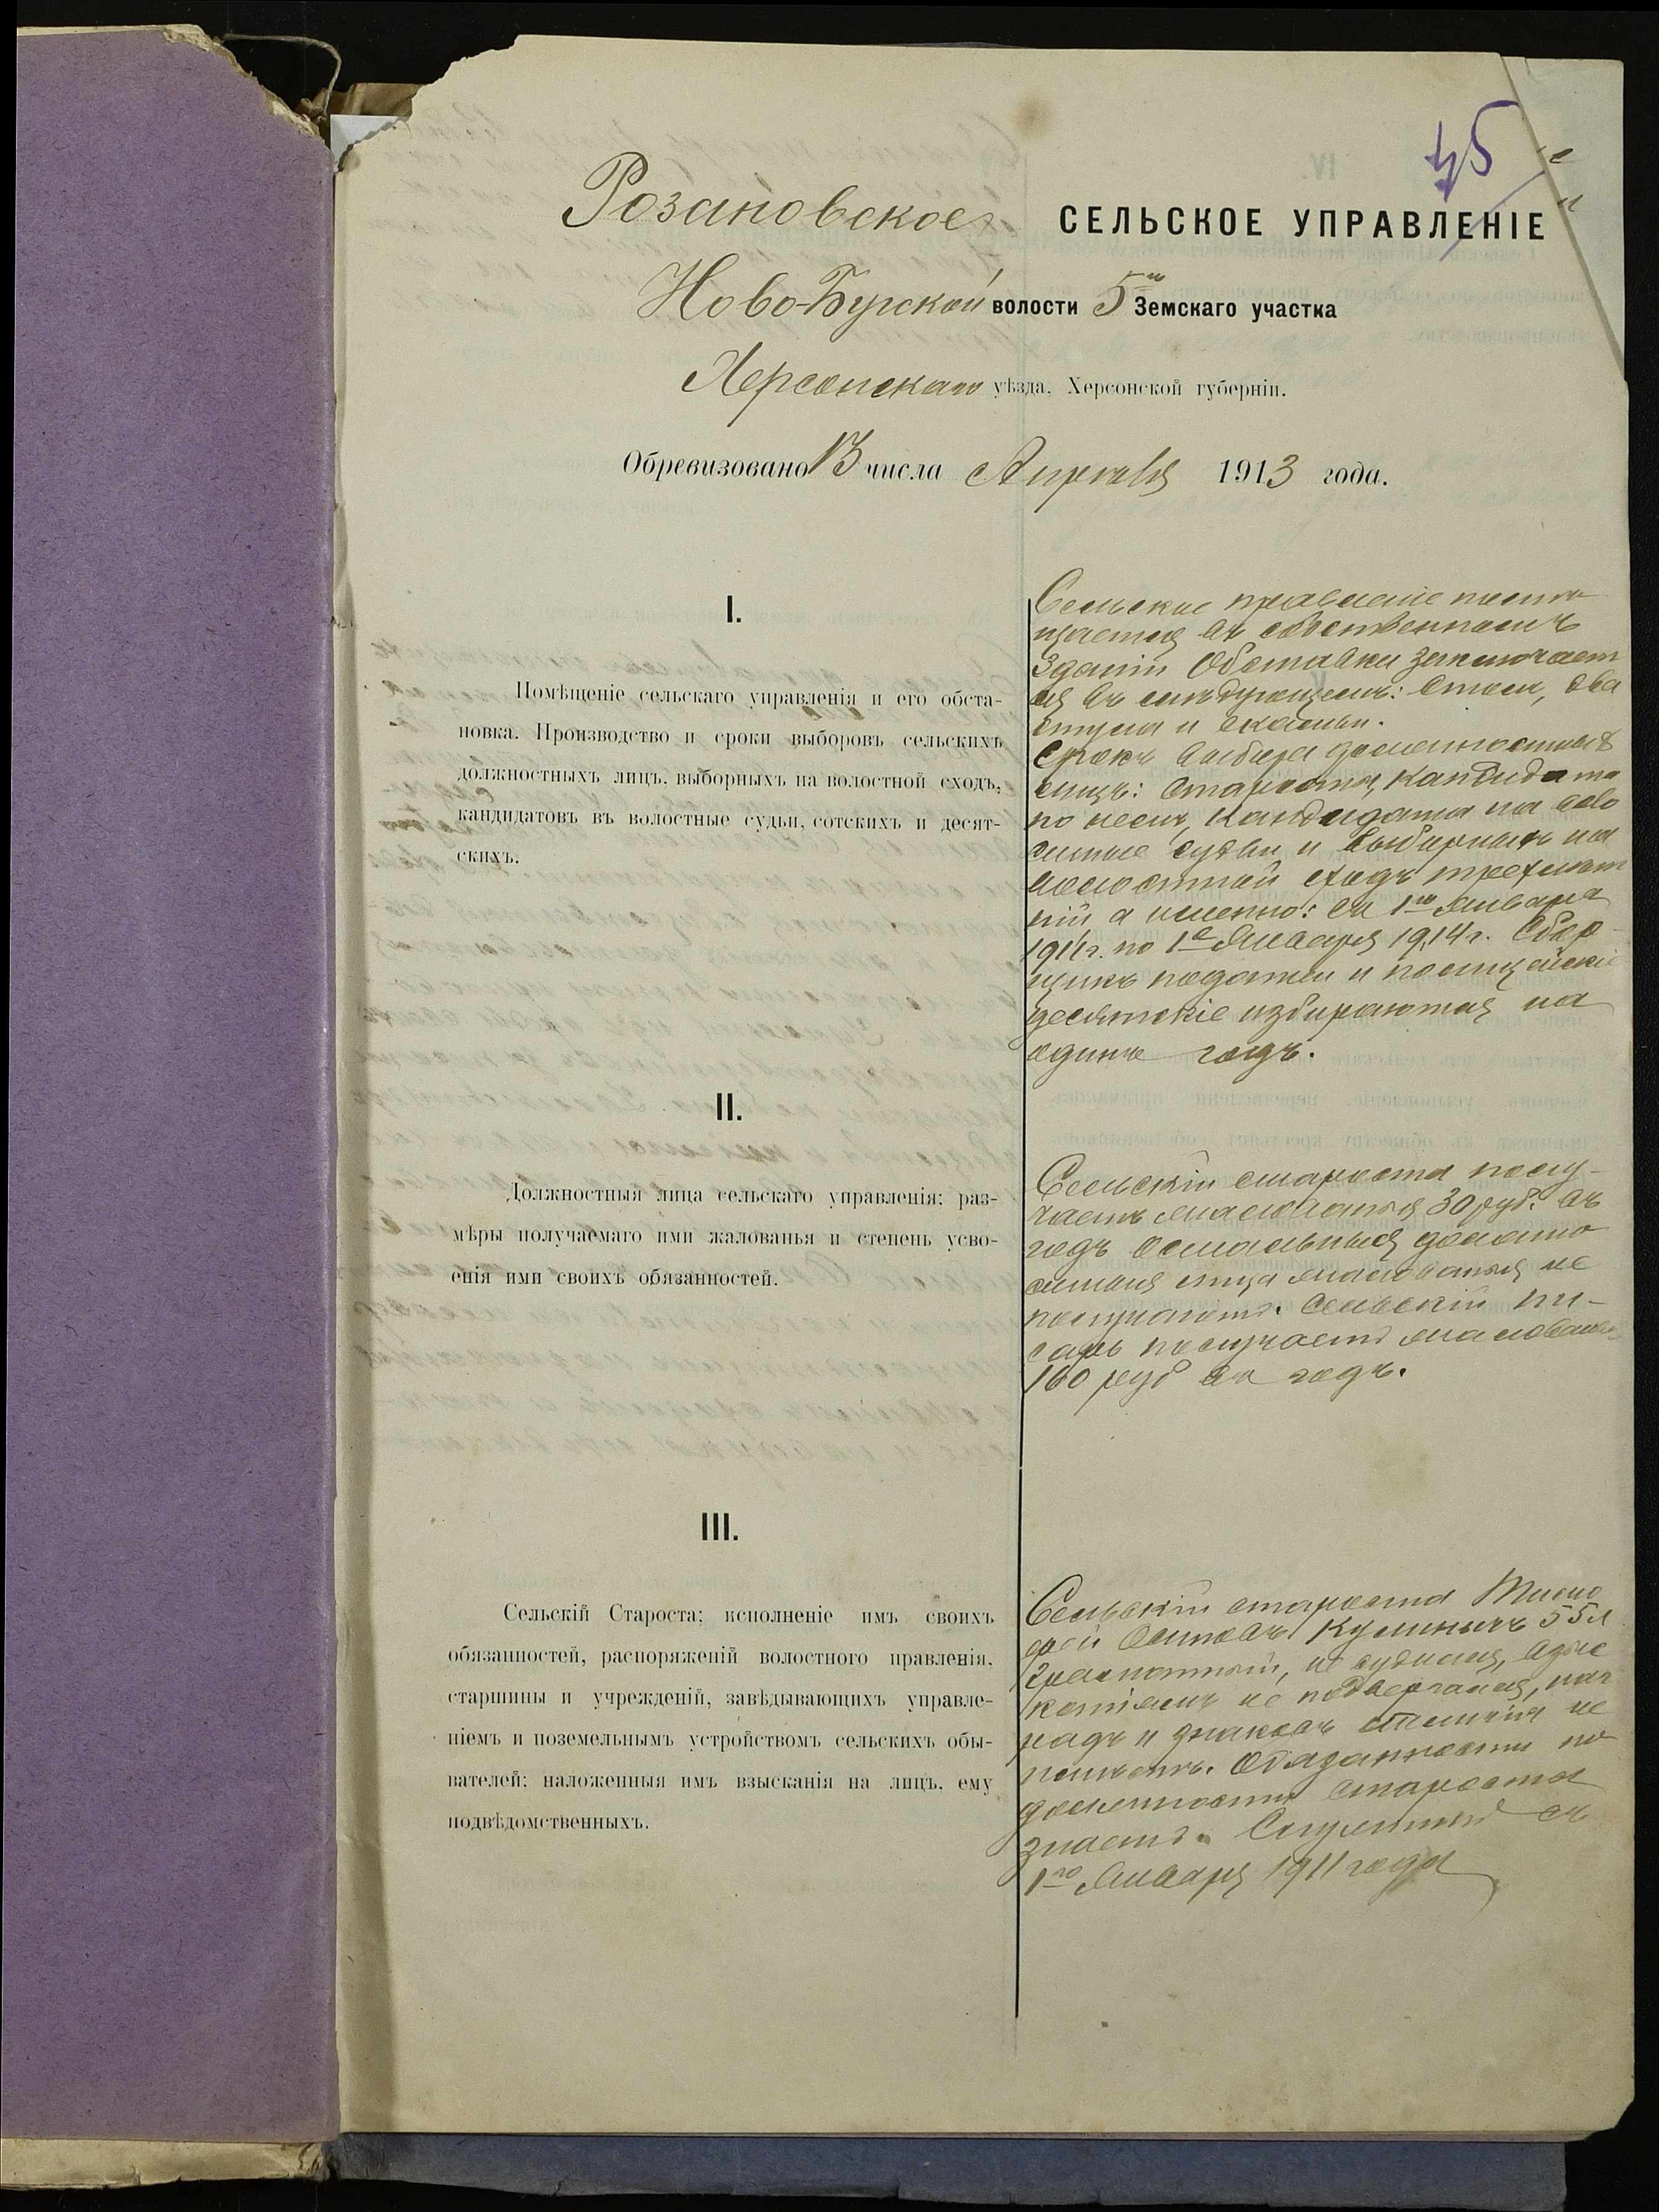 45
Розановское СЕЛЬСКОЕ УПРАВЛЕНІЕ
Ново-Бугской волости 5го Земскаго участка
Херсонскаго уѣзда, Херсонской губерніи.
Обревизовано 13 числа Апрѣля 1913 года.
I.
Помѣщеніе сельскаго управленія и его обста-
новка. Производство и сроки выборовъ сельскихъ
должностныхъ лицъ, выборныхъ на волостной сходъ,
кандидатовъ въ волостные судьи, сотскихъ и десят-
скихъ.
Сельское правленіе помѣ
щается въ собственномъ
зданіи Обставка заключает
ся въ слѣдующемъ: столъ, два
стула и скамьи.
Срокъ выбора должностныхъ
лицъ: Старосты, Кандидата
по немъ, Кандидата на воло
стные судьи и выборныхъ на
волостной сходъ трехлѣт
ній а именно: съ 1го Января
1911 г. по 1е Января 1914 г. Сбор-
щикъ податей и полицейскіе
десятскіе избираются на
одинъ годъ.
II.
Должностныя лица сельскаго управленія: раз-
мѣры получаемаго ими жалованья и степень усво-
енія ими своихъ обязанностей.
Сельскій староста полу-
чаетъ жалованья 30 руб. въ
годъ Остальныя должно
стныя лица жалованья не
получаютъ. Сельскій пи-
сарь получаетъ жалованье
160 руб въ годъ.
III.
Сельскій Староста; исполненіе имъ своихъ
обязанностей, распоряженій волостного правленія,
старшины и учрежденій, завѣдывающихъ управле-
ніемъ и поземельнымъ устройствомъ сельскихъ обы-
вателей; наложенныя имъ взысканія на лицъ, ему
подвѣдомственныхъ.
Сельскій староста Тимо
фей Осиповъ Кулиничъ 55 л
грамотный, не судился, взыс
каніямъ не подвергался, наг
радъ и знаковъ отличія не
имѣетъ. Обязанности по
должности старосты
знаетъ. Служитъ съ
1го Января 1911 года